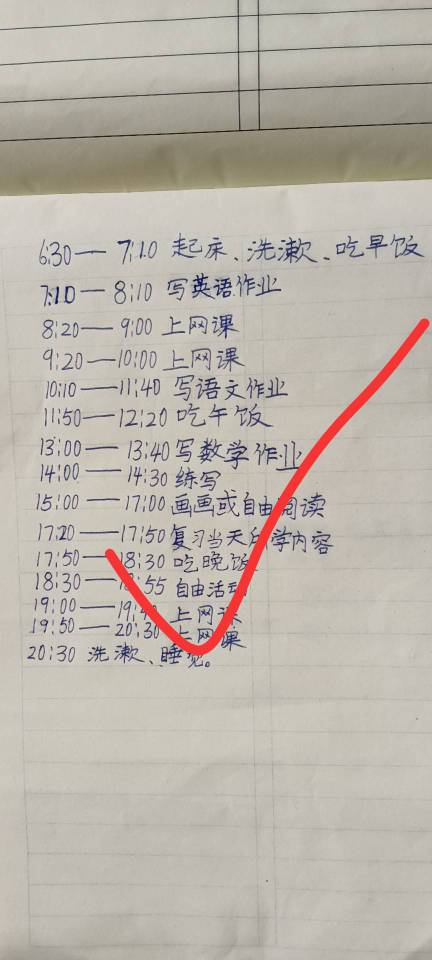 6:30—7:10 起床、洗漱、吃早饭
7:10—8:10 写英语作业
8:20—9:00 上网课
9:20—10:00 上网课
10:10—11:40 写语文作业
11:50—12:20 吃午饭
13:00—13:40 写数学作业
14:00—14:30 练写
15:00—17:00 画画或自由阅读
17:20—17:50 复习当天所学内容
17:50—18:30 吃晚饭
18:30—18:55 自由活动
19:00—19:40 上网课
19:50—20:30 上网课
20:30 洗漱、睡觉。